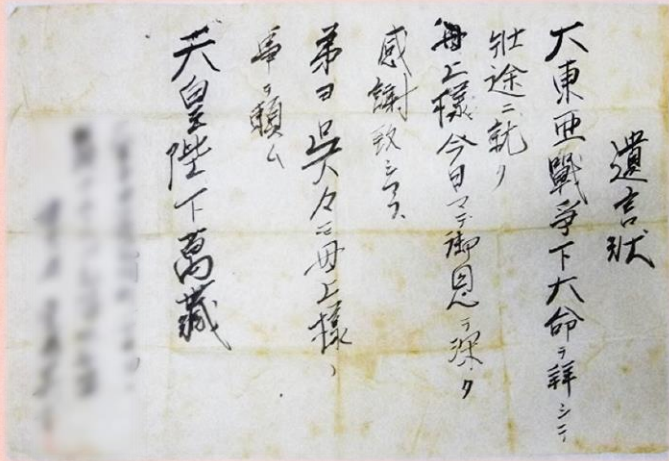 遺言状
大東亜戦争下大命ヲ拝シテ
壮途ニ就ク
母上様今日マデ御恩ヲ深ク
感謝致シマス
弟ヨ呉々モ母上様ノ
事ヲ頼ム
天皇陛下萬歳